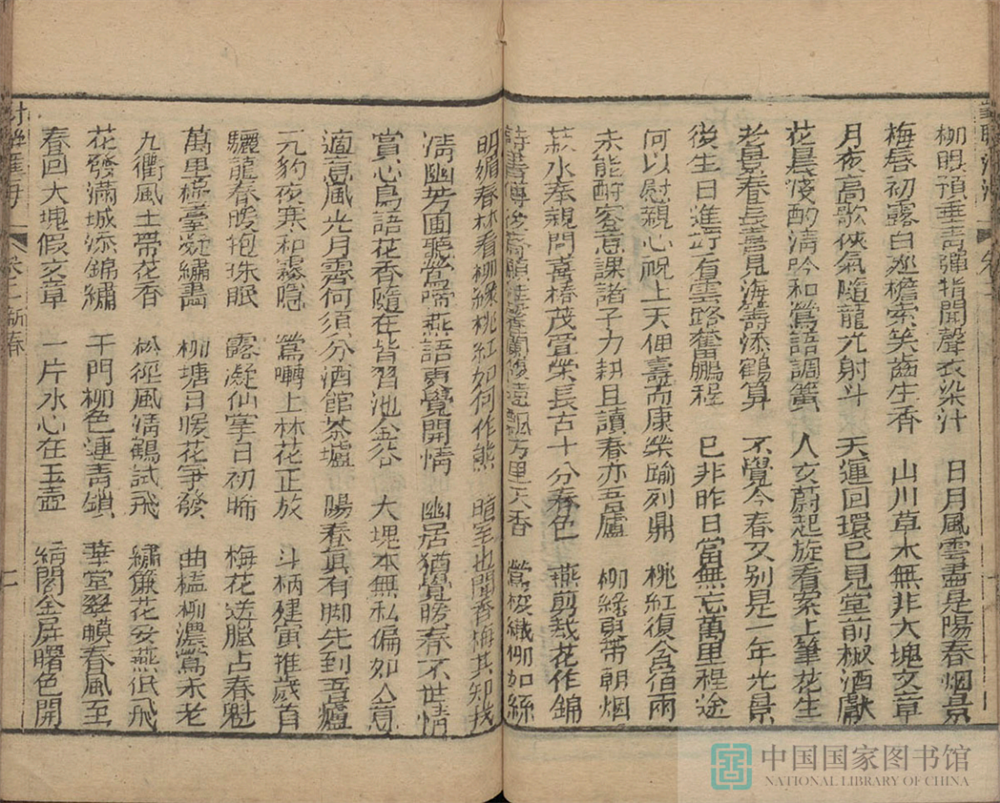 柳眼預垂青彈指聞聲衣染汁 日月風雲盡是陽春烟景
梅唇初露白巡檐索笑齒生香 山川草木無非大塊文章
月夜高歌俠氣隨龍光射斗 天運回環已見堂前椒酒獻
花晨淺酌清吟和鶯語調簧 人文蔚起旋看案上筆花生
老景春長喜見海籌添鶴算 不覺今春又別是一年光景
後生日進巧有雲路奮鵬程 已非昨日當無忘萬里程途
何以慰親心祝上天俾壽而康榮踰列鼎 桃紅復含宿雨
未能酧客意課諸子力耕且讀春亦吾廬 柳綠更帶朝烟
菽水奉親門喜椿茂萱榮長占十分春色 燕剪裁花作錦
詩書傳後 萬里天香 鶯梭織柳如絲
明媚春林看柳綠桃紅如何作態 暗室也聞香梅其知我
清幽芳圃聽鶯啼燕語更覺開情 幽居猶覺暖春不世情
賞心鳥語花香隨在皆習池金谷 大塊本無私偏如人意
適意風光月霽何須分酒館茶壚 陽春真有脚先到吾廬
元豹夜寒和霧隱 鶯囀上林花正放 斗柄建寅推歲首
驪龍春暖抱珠眠 露凝仙掌日初晞 梅花送臘占春魁
萬里樓臺凝繡畫 柳塘日暖花爭發 曲檻柳濃鶯未老
九衢風土帶花香 松徑風清鶴試飛 繡簾花妥燕低飛
花發滿城添錦繡 千門柳色連青鎖 華堂翠幙春風至
春回大塊假文章 一片冰心在玉壺 綺閣金屏曙色開
卷二 新春